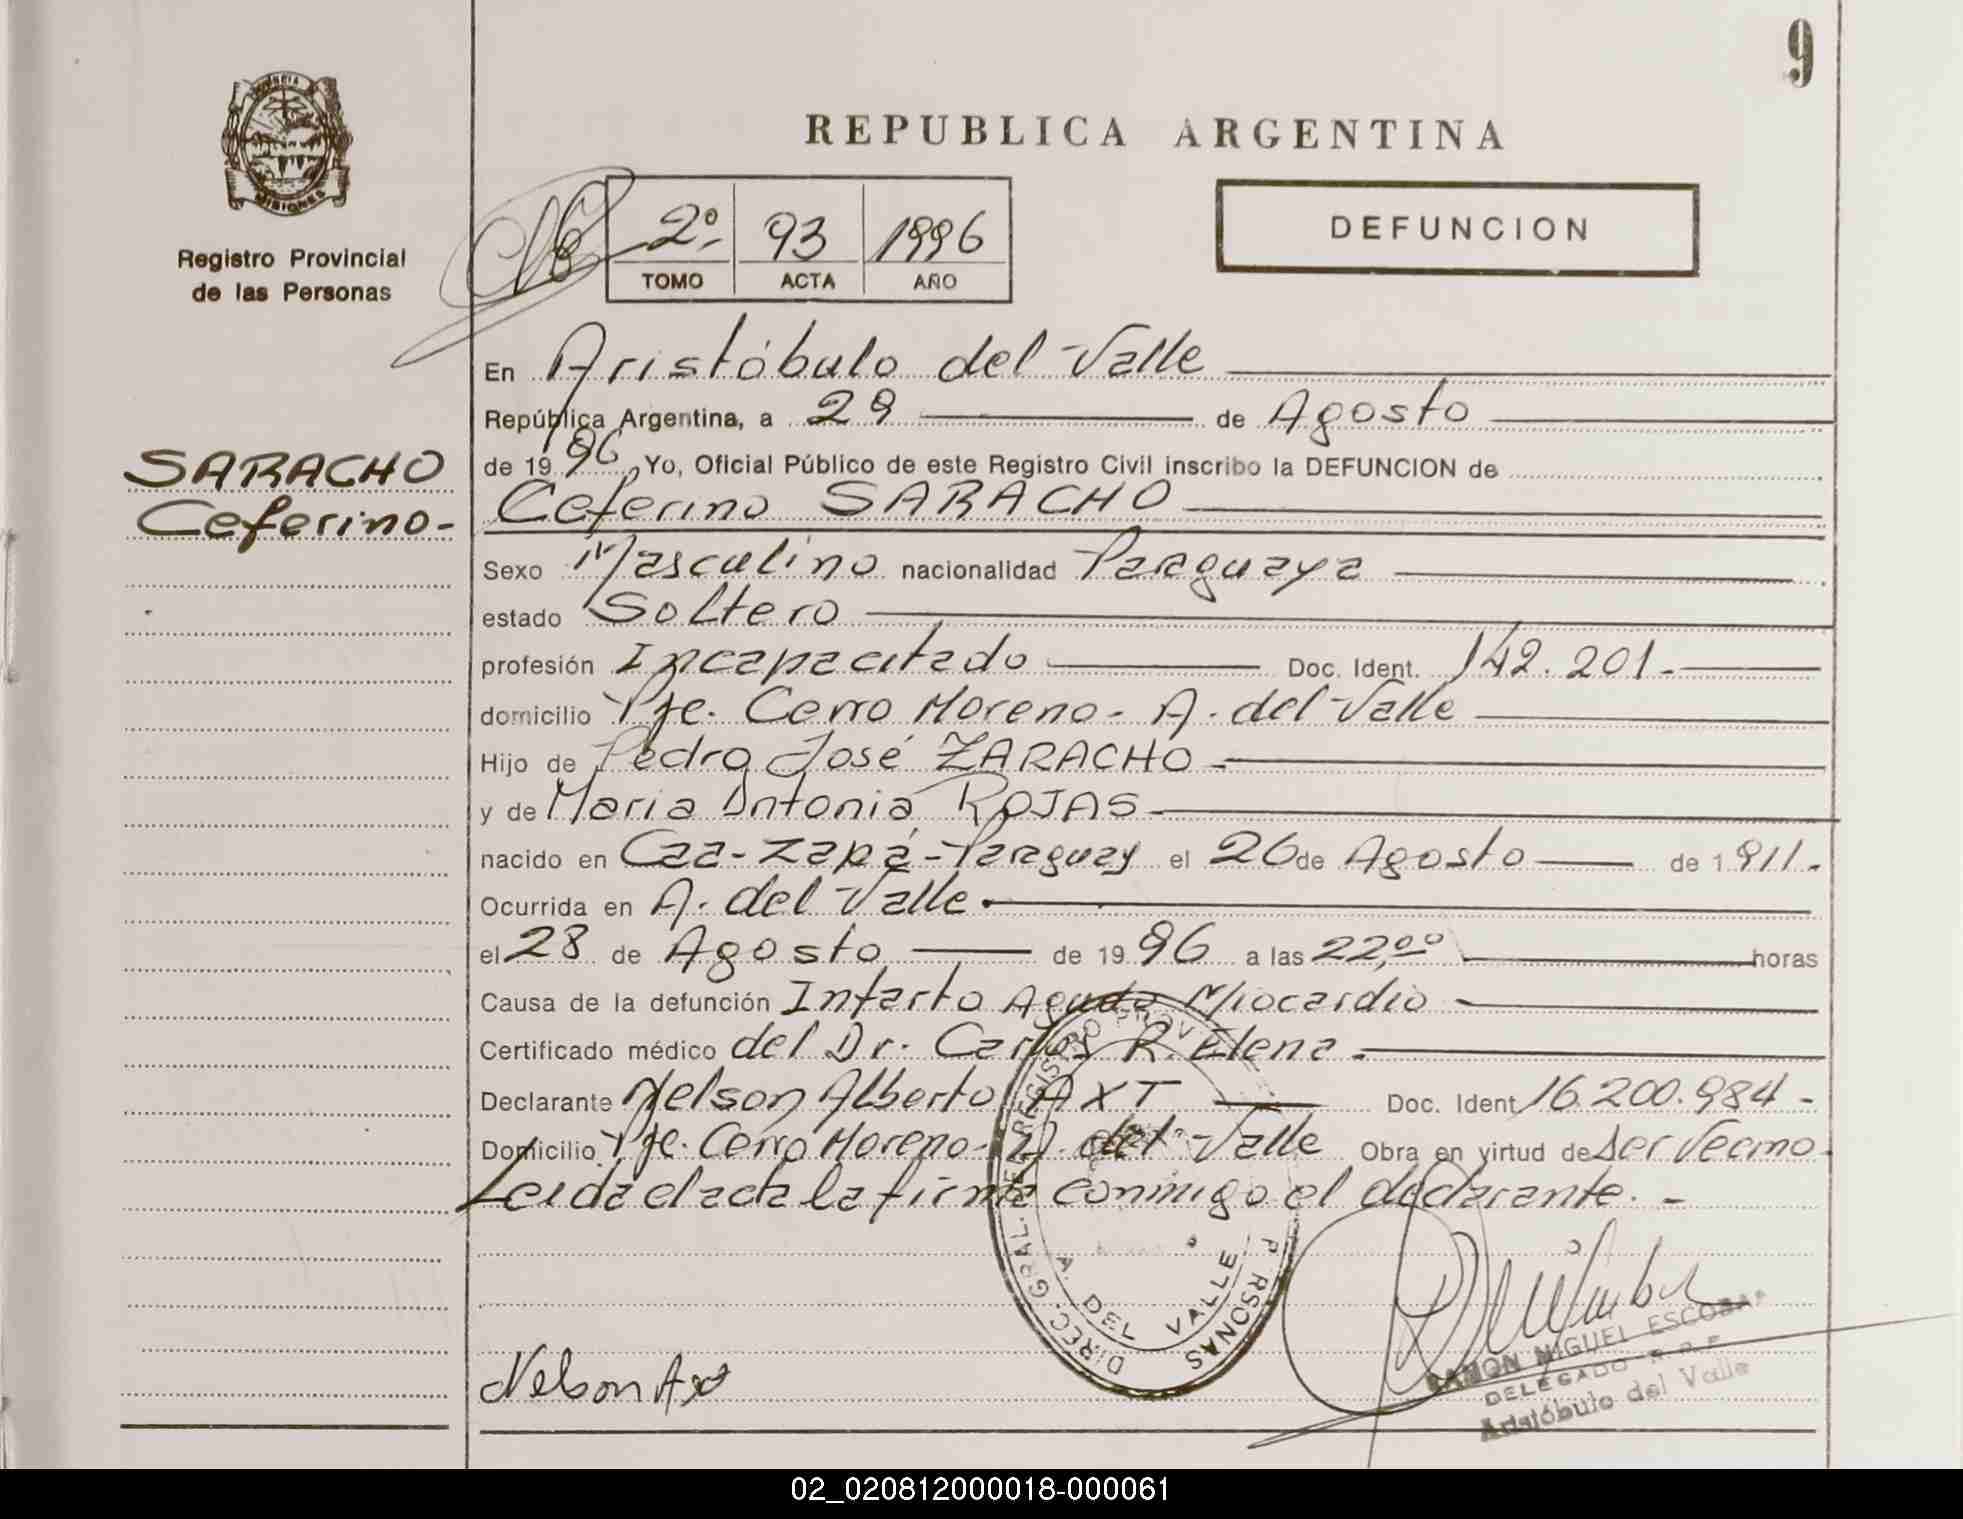 9
PROVINCIA
MISIONES
Registro Provincial
de las Personas
REPUBLICA ARGENTINA
2º 93 1996
TOMO ACTA AÑO
DEFUNCION
SARACHO
Ceferino-
En Aristóbulo del Valle
República Argentina, a 29 de Agosto
de 1996, Yo, Oficial Público de este Registro Civil inscribo la DEFUNCION de
Ceferino SARACHO
Sexo Masculino nacionalidad Paraguaya
estado Soltero
profesión Incapacitado Doc. Ident. 142.201-
domicilio Pje. Cerro Moreno- A. del Valle
Hijo de Pedro José ZARACHO-
y de Maria Antonia ROJAS-
nacido en Caa-zapá-Paraguay el 26 de Agosto de 1911.
Ocurrida en A. del Valle.
el 28 de Agosto de 1996 a las 22,00 horas
Causa de la defunción Infarto Agudo Miocardio
Certificado médico del Dr. Carlos R. Elena.
Declarante Nelson Alberto AXT Doc. Ident 16.200.984-
Domicilio Pje. Cerro Moreno- A. del Valle Obra en virtud de Ser Vecino
Leida el acta la firma conmigo el declarante.-
DIREC. GRAL. DEL REGISTRO PROV. P RSONAS
A. DEL VALLE
Nelson Axt
RAMON MIGUEL ESCOBAR
DELEGADO R.P.P.
Aristóbulo del Valle
02_020812000018-000061